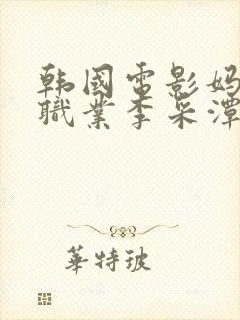 韩国电影妈
職業李采潭
華特玻